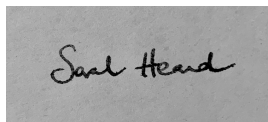 Sarah Heard